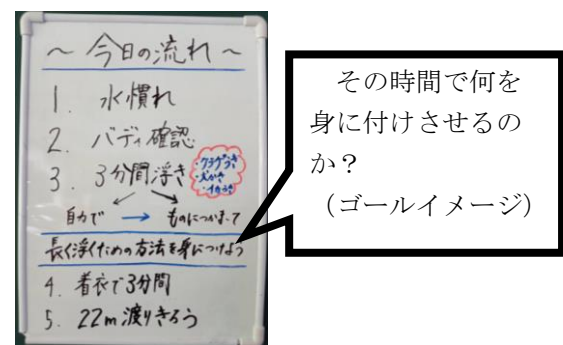 ～今日の流れ～
1. 水慣れ
2. バディ確認
3. 3分間浮き
・クラゲうき
自力で → ものにつかまって
長く浮くための方法を身につけよう
4. 着衣で3分間
5. 22m渡りきろう
その時間で何を
身に付けさせるの
か？
（ゴールイメージ）